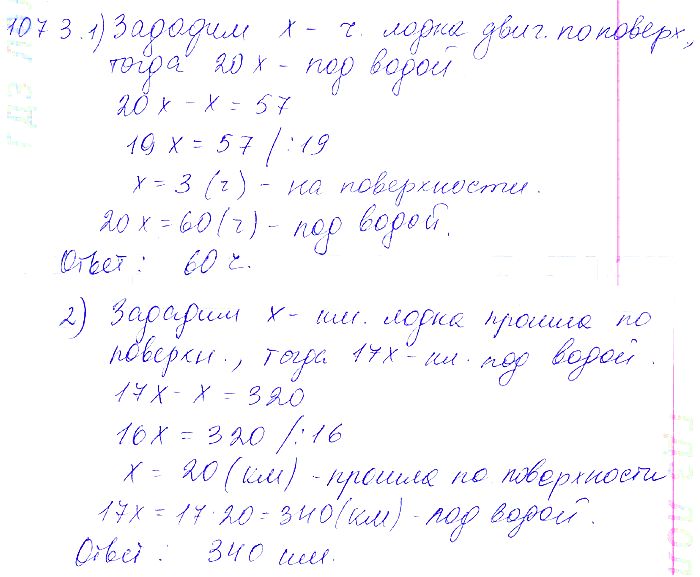 1073. 1) Зададим x - ч. лодка двиг. по поверх,
тогда 20x - под водой
20x - x = 57
19x = 57 /:19
x = 3 (ч) - на поверхности.
20x = 60 (ч) - под водой.
Ответ: 60 ч.
2) Зададим x - км. лодка прошла по
поверхн., тогда 17x - км. под водой.
17x - x = 320
16x = 320 /:16
x = 20 (км) - прошла по поверхности
17x = 17·20 = 340 (км) - под водой.
Ответ: 340 км.